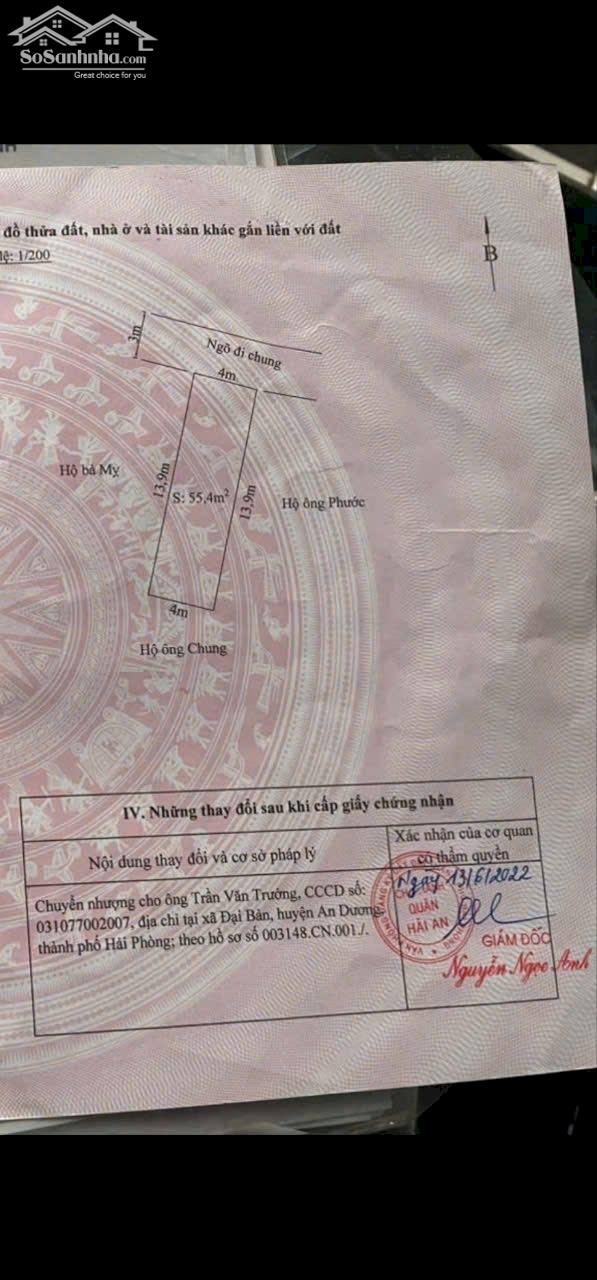 SoSanhnha.com
Great choice for you
đồ thửa đất, nhà ở và tài sản khác gắn liền với đất
lệ: 1/200
B
3m
Ngõ đi chung
4m
Hộ bà Mỵ
13,9m
S: 55,4m²
13,9m
Hộ ông Phước
4m
Hộ ông Chung
IV. Những thay đổi sau khi cấp giấy chứng nhận
Nội dung thay đổi và cơ sở pháp lý
Xác nhận của cơ quan
có thẩm quyền
Chuyển nhượng cho ông Trần Văn Trường, CCCD số:
031077002007, địa chỉ tại xã Đại Bản, huyện An Dương,
thành phố Hải Phòng; theo hồ sơ số 003148.CN.001./.
Ngày 13/6/2022
QUẬN
HẢI AN
GIÁM ĐỐC
Nguyễn Ngọc Anh